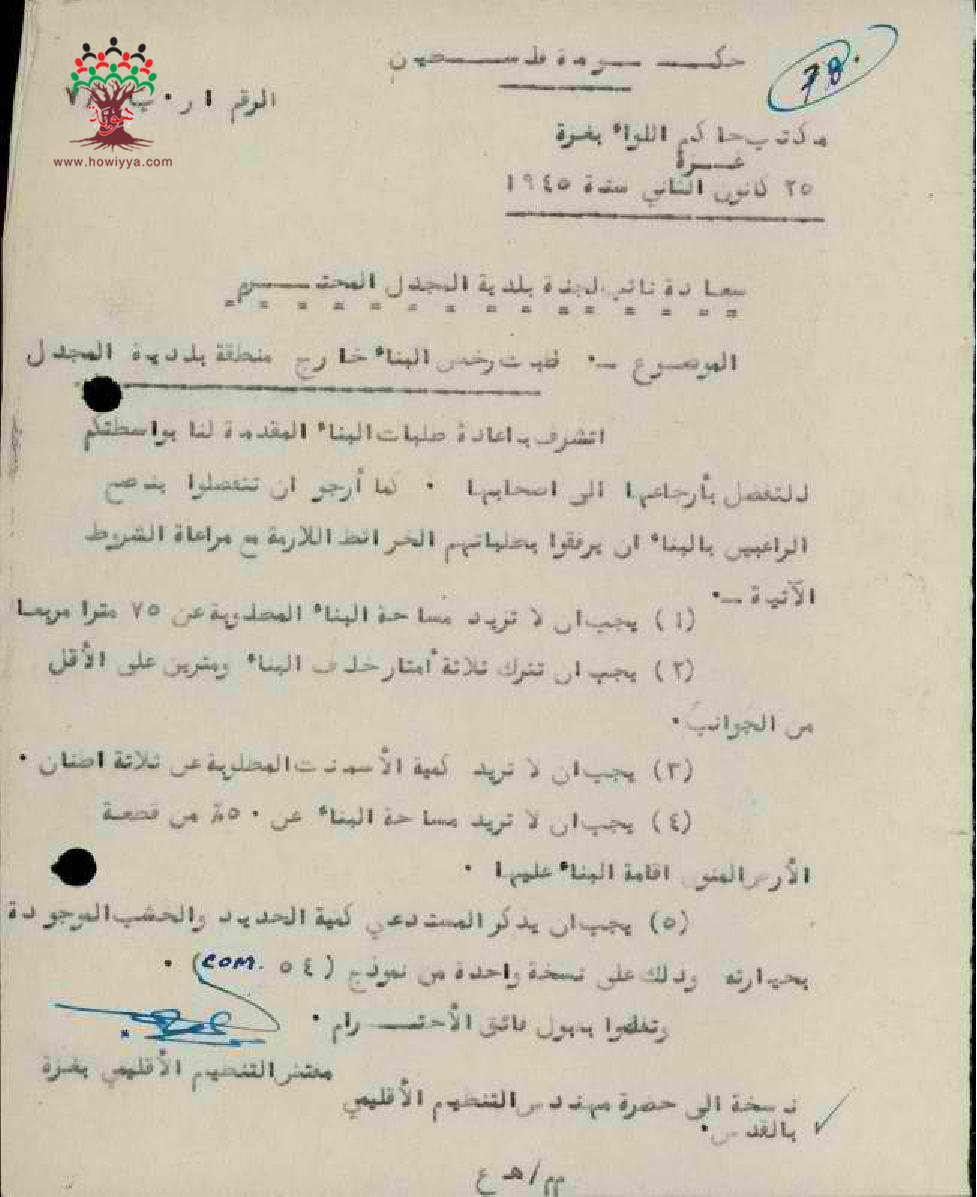 78.
حكومة فلسطين
الرقم ا ر . ب ٧٨
هوية
www.howiyya.com
مكتب حاكم اللواء بغزة
غزة
٢٥ كانون الثاني سنة ١٩٤٥
سعادة نائب لجنة بلدية المجدل المحترم
الموضوع -. طلبات رخص البناء خارج منطقة بلدية المجدل
اتشرف باعادة طلبات البناء المقدمة لنا بواسطتكم
للتفضل بأرجاعها الى اصحابها . كما أرجو ان تتفضلوا بنصح
الراغبين بالبناء ان يرفقوا بطلباتهم الخرائط اللازمة مع مراعاة الشروط
الآتية -.
(١) يجب ان لا تزيد مساحة البناء المطلوبة عن ٧٥ مترا مربعا
(٢) يجب ان تترك ثلاثة أمتار خلف البناء ومترين على الأقل
من الجوانب .
(٣) يجب ان لا تزيد كمية الأسمنت المطلوبة عن ثلاثة اطنان .
(٤) يجب ان لا تزيد مساحة البناء عن ٥٠٪ من قطعة
الأرض المنوى اقامة البناء عليها .
(٥) يجب ان يذكر المستدعي كمية الحديد والخشب الموجودة
بحيازته وذلك على نسخة واحدة من نموذج (COM. ٥٤) .
وتفضلوا بقبول فائق الأحترام .
مفتش التنظيم الأقليمي بغزة
نسخة الى حضرة مهندس التنظيم الأقليمي
بالقدس .
مم/هـ ع